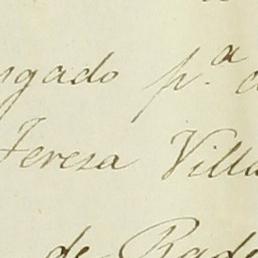 ngado p.ª d
Teresa Villa
de Rade